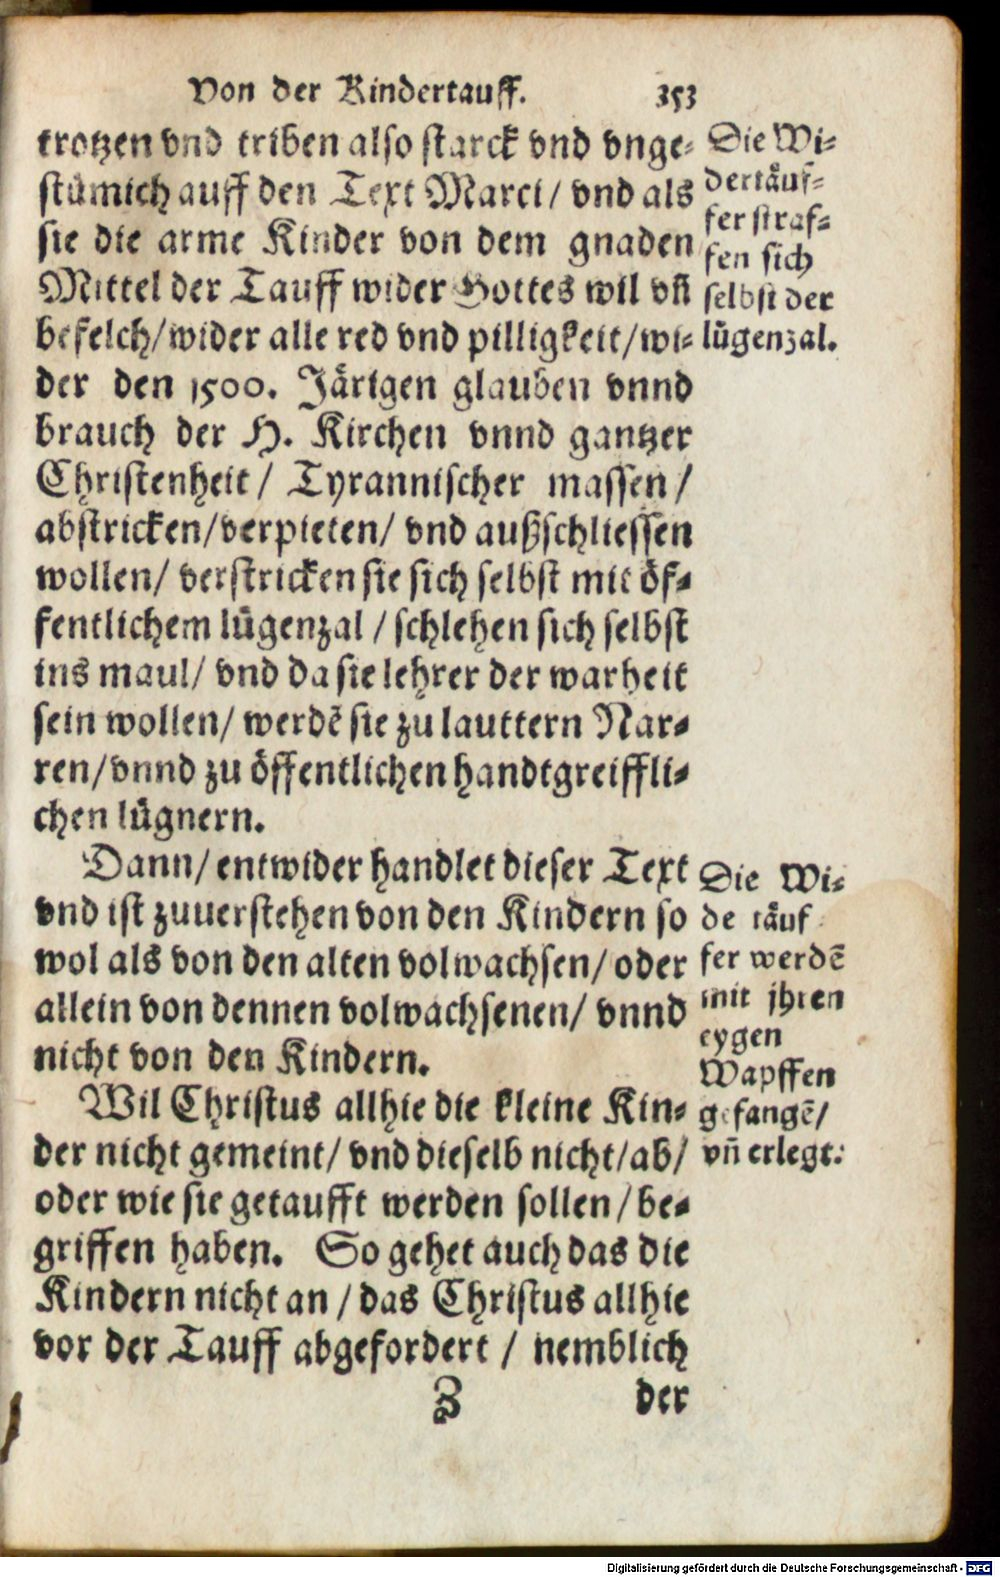 Von der Kindertauff. 353
trotzen vnd triben also starck vnd vnge-
stümich auff den Text Marci/ vnd als
sie die arme Kinder von dem gnaden
Mittel der Tauff wider Gottes wil vñ
befelch/wider alle red vnd pilligkeit/wi-
der den 1500. Järigen glauben vnnd
brauch der H. Kirchen vnnd gantzer
Christenheit/ Tyrannischer massen/
abstricken/verpieten/ vnd außschliessen
wollen/ verstricken sie sich selbst mit öf-
fentlichem lügenzal/schlehen sich selbst
ins maul/ vnd da sie lehrer der warheit
sein wollen/ werdē sie zu lauttern Nar-
ren/vnnd zu öffentlichen handtgreiffli-
chen lügnern.
Dann/ entwider handlet dieser Text
vnd ist zuuerstehen von den Kindern so
wol als von den alten volwachsen/oder
allein von dennen volwachsenen/ vnnd
nicht von den Kindern.
Wil Christus allhie die kleine Kin-
der nicht gemeint/ vnd dieselb nicht/ab/
oder wie sie getaufft werden sollen/be-
griffen haben. So gehet auch das die
Kindern nicht an/das Christus allhie
vor der Tauff abgefordert/ nemblich
Z der
Die Wi-
dertäuf-
fer straf-
fen sich
selbst der
lügenzal.
Die Wi-
de täuf
fer werdē
mit jhren
eygen
Wapffen
gefangē/
vñ erlegt.
Digitalisierung gefördert durch die Deutsche Forschungsgemeinschaft - DFG